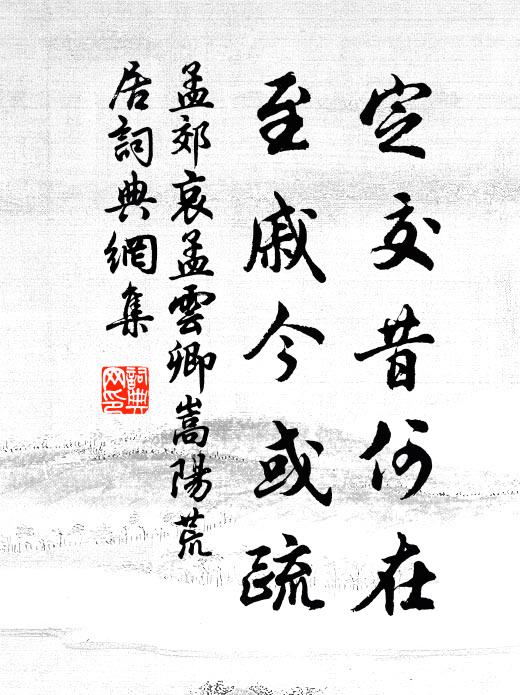 定交昔何在
至戚今或疏
孟郊哀孟雲卿嵩陽荒
居詞典網集
詞典
网印